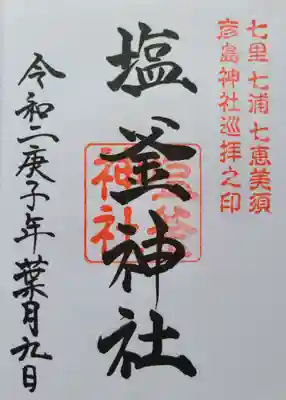 七里七浦七恵美須
彦島神社巡拝之印
塩釜神社
令和二庚子年葉月九日